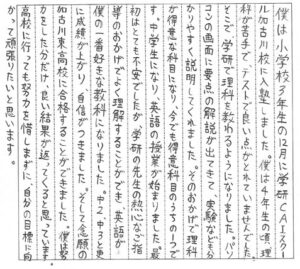 僕は小学校3年生の12月に学研CAIスクー
ル加古川校に入塾しました。僕は4年生の頃、理
科が苦手で、テストで良い点がとれていませんでした。
そこで、学研で理科を教わるようになりました。パソ
コンの画面に要点の解説が出てきて、実験なども分
かりやすく説明してくれました。そのおかげで理科
が得意な科目になり、今でも得意科目のうちの1つで
す。中学生になり、英語の授業が始まりました。最
初はとても不安でしたが、学研の先生の熱心なご指
導のおかげでよく理解することができ、英語が
僕の一番好きな教科になりました。中2、中3と更
に成績が上がり、自信がつきました。そして念願の
加古川東高校に合格することができました。僕は努
力をした分だけ良い結果が返ってくると思っています。
高校に行っても努力を惜しまずに、自分の目標に向
かって頑張りたいと思います。